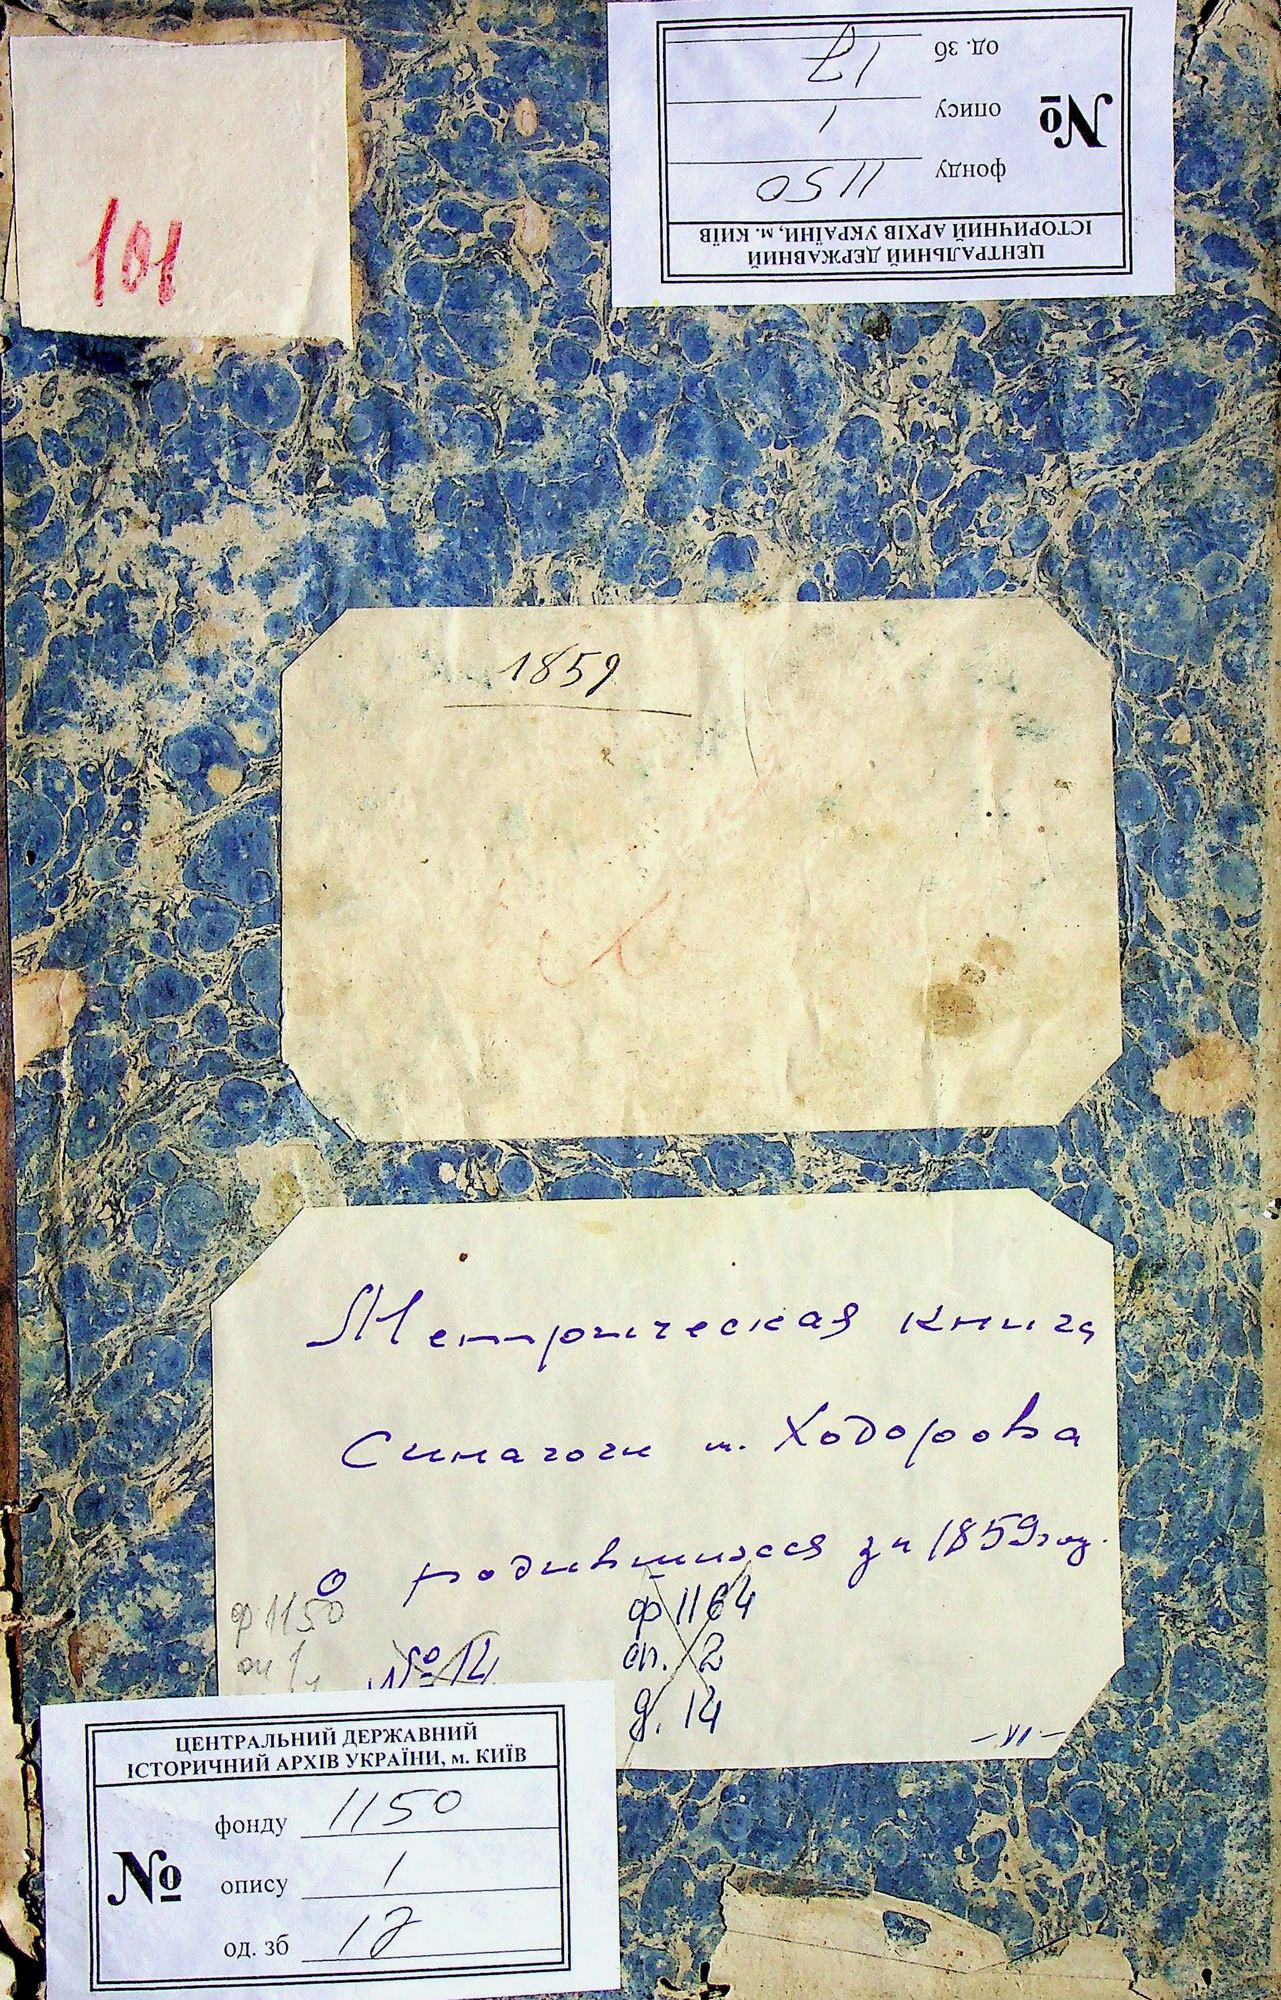 101
ЦЕНТРАЛЬНИЙ ДЕРЖАВНИЙ
ІСТОРИЧНИЙ АРХІВ УКРАЇНИ, м. КИЇВ
№
фонду 1150
опису 1
од. зб 17
1859
Метрическая книга
Синагоги м. Ходорова
О родившихся за 1859 год.
ф 1150
оп 1
№ 14
ф 1164
оп. 2
д. 14
-VI-
ЦЕНТРАЛЬНИЙ ДЕРЖАВНИЙ
ІСТОРИЧНИЙ АРХІВ УКРАЇНИ, м. КИЇВ
№
фонду 1150
опису 1
од. зб 17